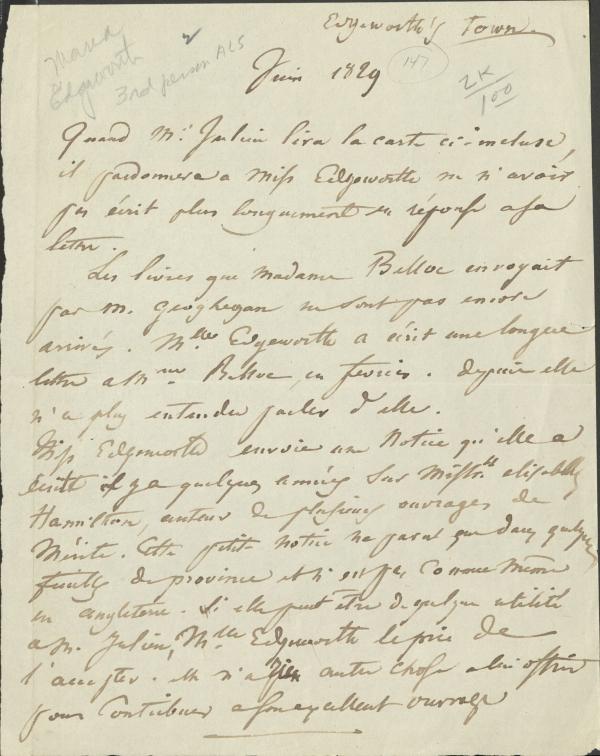 Edgeworth's Town
Juin 1829
147
Maria
Edgeworth
3rd person ALS
2K
/100
Quand Mr. Julien lira la carte ci-incluse,
il pardonnera a Miss Edgeworth de n'avoir
pas écrit plus longuement en réponse a sa
lettre.
Les livres que Madame Belloc envoyait
par M. Geoghegan ne sont pas encore
arrivés. Mlle Edgeworth a écrit une longue
lettre a Mme Belloc, en fevrier. depuis elle
n'a plus entendu parler d'elle.
Miss Edgeworth envoie une Notice qu'elle a
écrite il y a quelques années sur Mistss elisabeth
Hamilton, auteur de plusieurs ouvrages de
Mérite. Cette petite notice ne parut que dans quelques
feuilles de province et n'est pas connue même
en angleterre. Si elle peut être de quelque utilité
a M. Julien, Mlle Edgeworth le prie de
l'accepter. elle n'a rien autre chose a lui offrir
pour contribuer a son excellent ouvrage